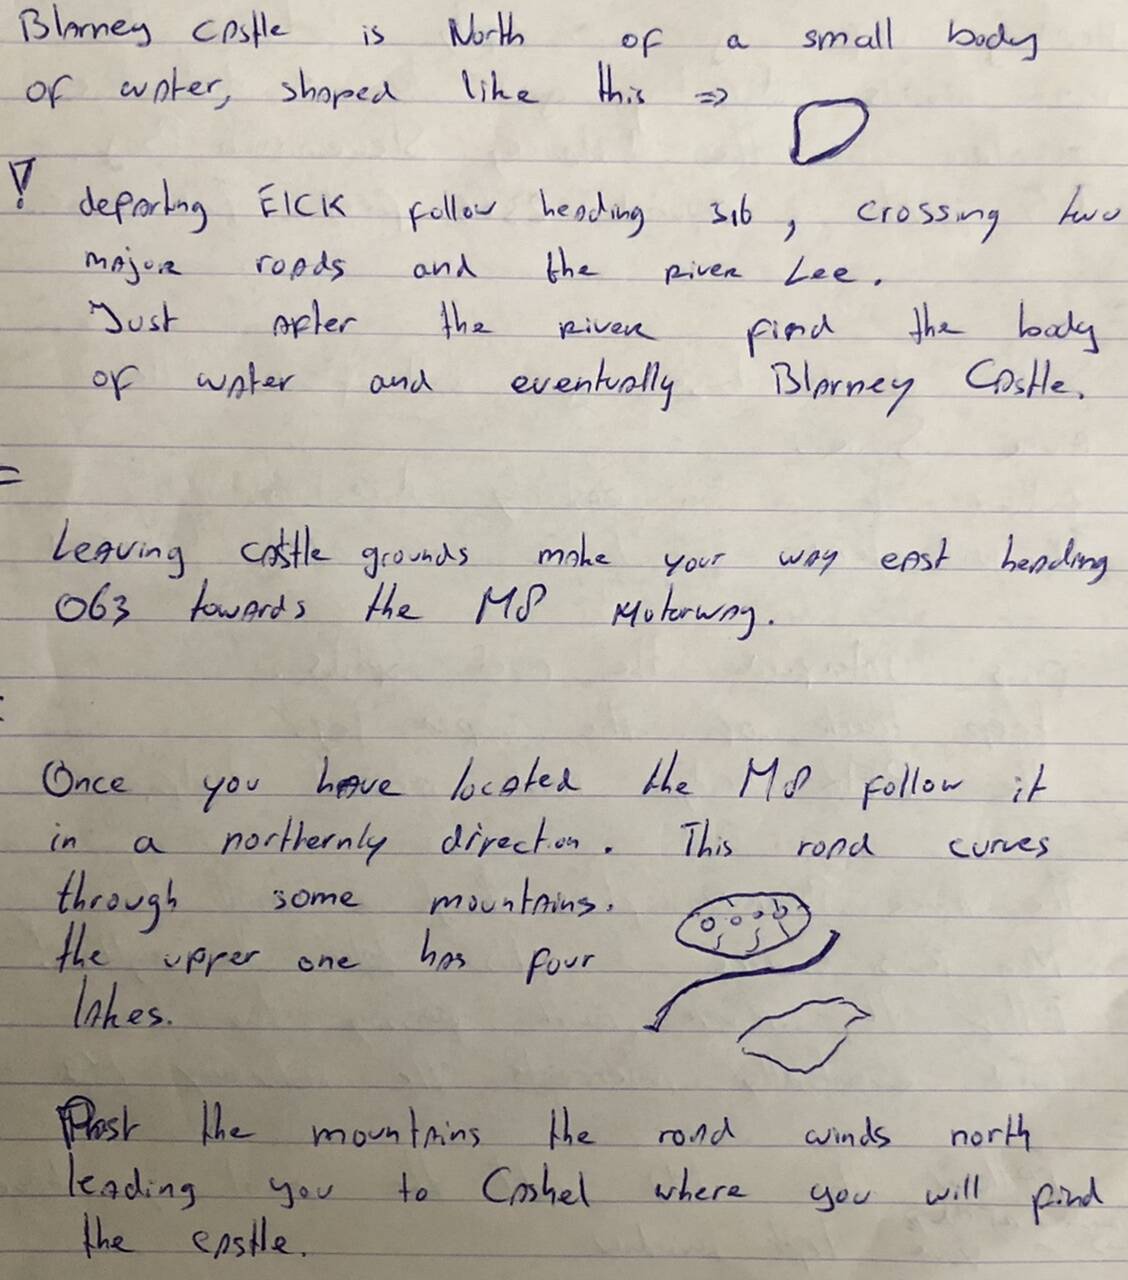 Blarney castle is North of a small body
of water, shaped like this =>
! departing EICK follow heading 316, crossing two
major roads and the river Lee.
Just after the river find the body
of water and eventually Blarney Castle.
=
Leaving castle grounds make your way east heading
063 towards the M8 Motorway.
:
Once you have located the M8 follow it
in a northernly direction. This road curves
through some mountains.
the upper one has four
lakes.
Past the mountains the road winds north
leading you to Cashel where you will find
the castle.